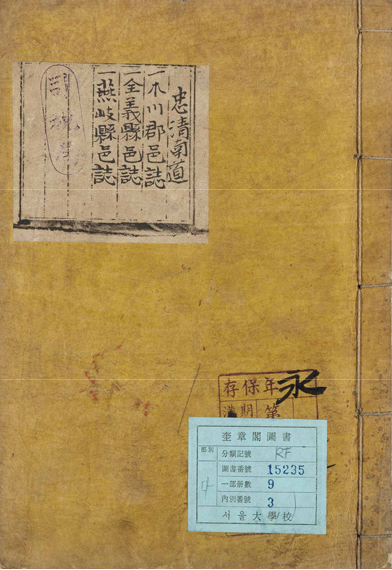 忠淸南道
一木川郡邑誌
一全義縣邑誌
一燕岐縣邑誌
存保年永
期 第
奎章閣圖書
部別
分類記號 RF
圖書番號 15235
一部冊數 9
內別番號 3
서울大學校